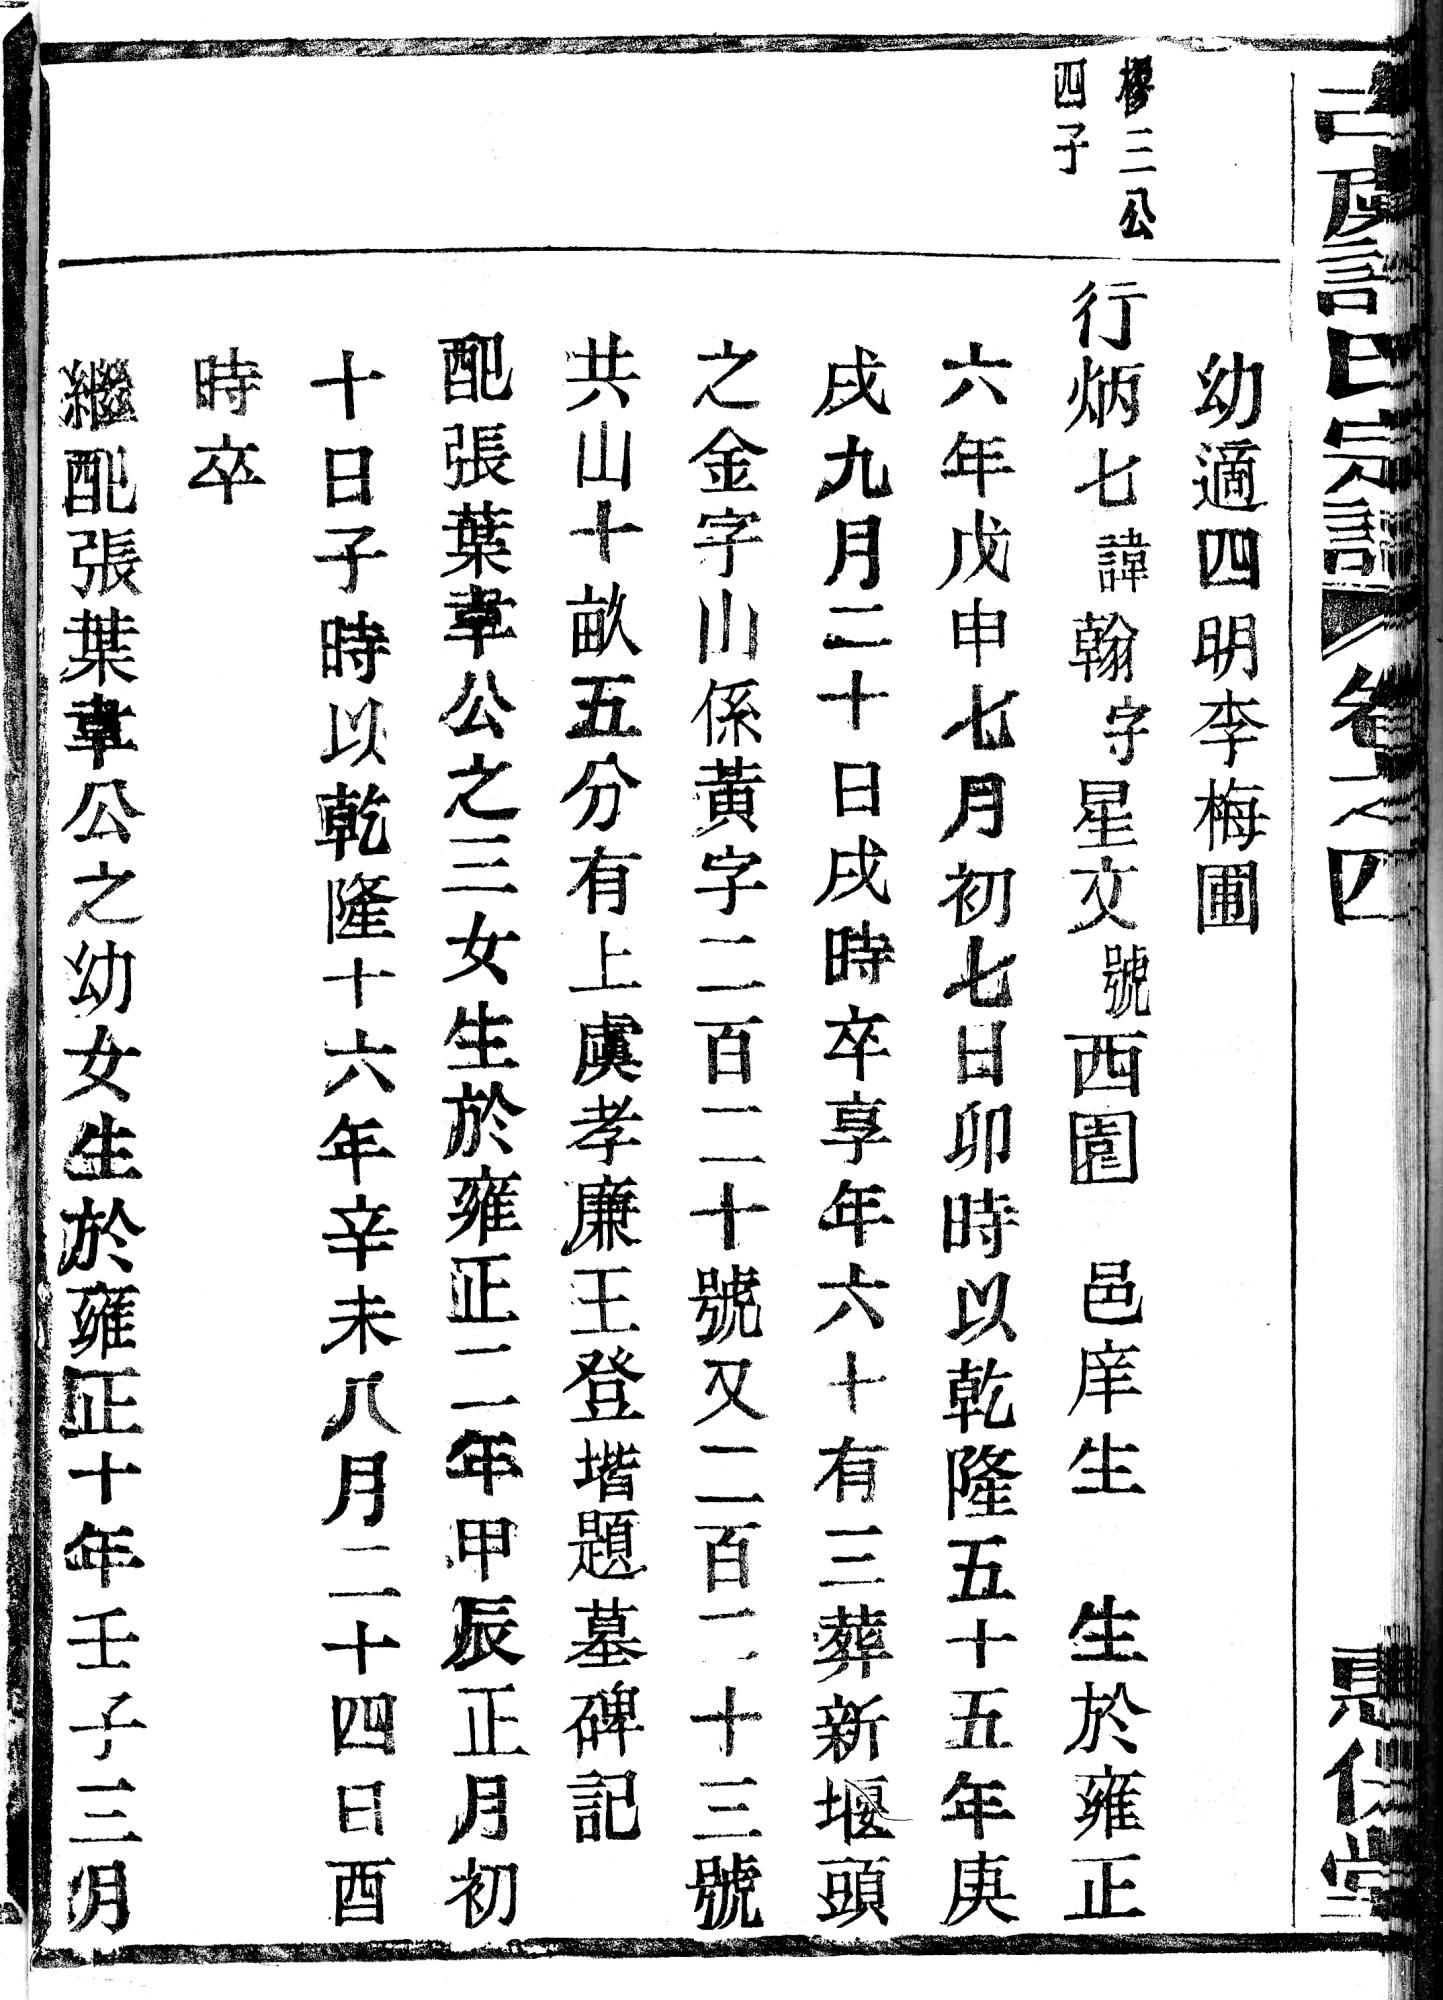 古虞許氏宗譜 卷之四 惇倫堂
幼適四明李梅圃
樛三公
四子
行炳七諱翰字星文號西園 邑庠生 生於雍正
六年戊申七月初七日卯時以乾隆五十五年庚
戌九月二十日戌時卒享年六十有三葬新堰頭
之金字山係黃字二百二十號又二百二十三號
共山十畝五分有上虞孝廉王登堦題墓碑記
配張葉韋公之三女生於雍正二年甲辰正月初
十日子時以乾隆十六年辛未八月二十四日酉
時卒
繼配張葉韋公之幼女生於雍正十年壬子三月